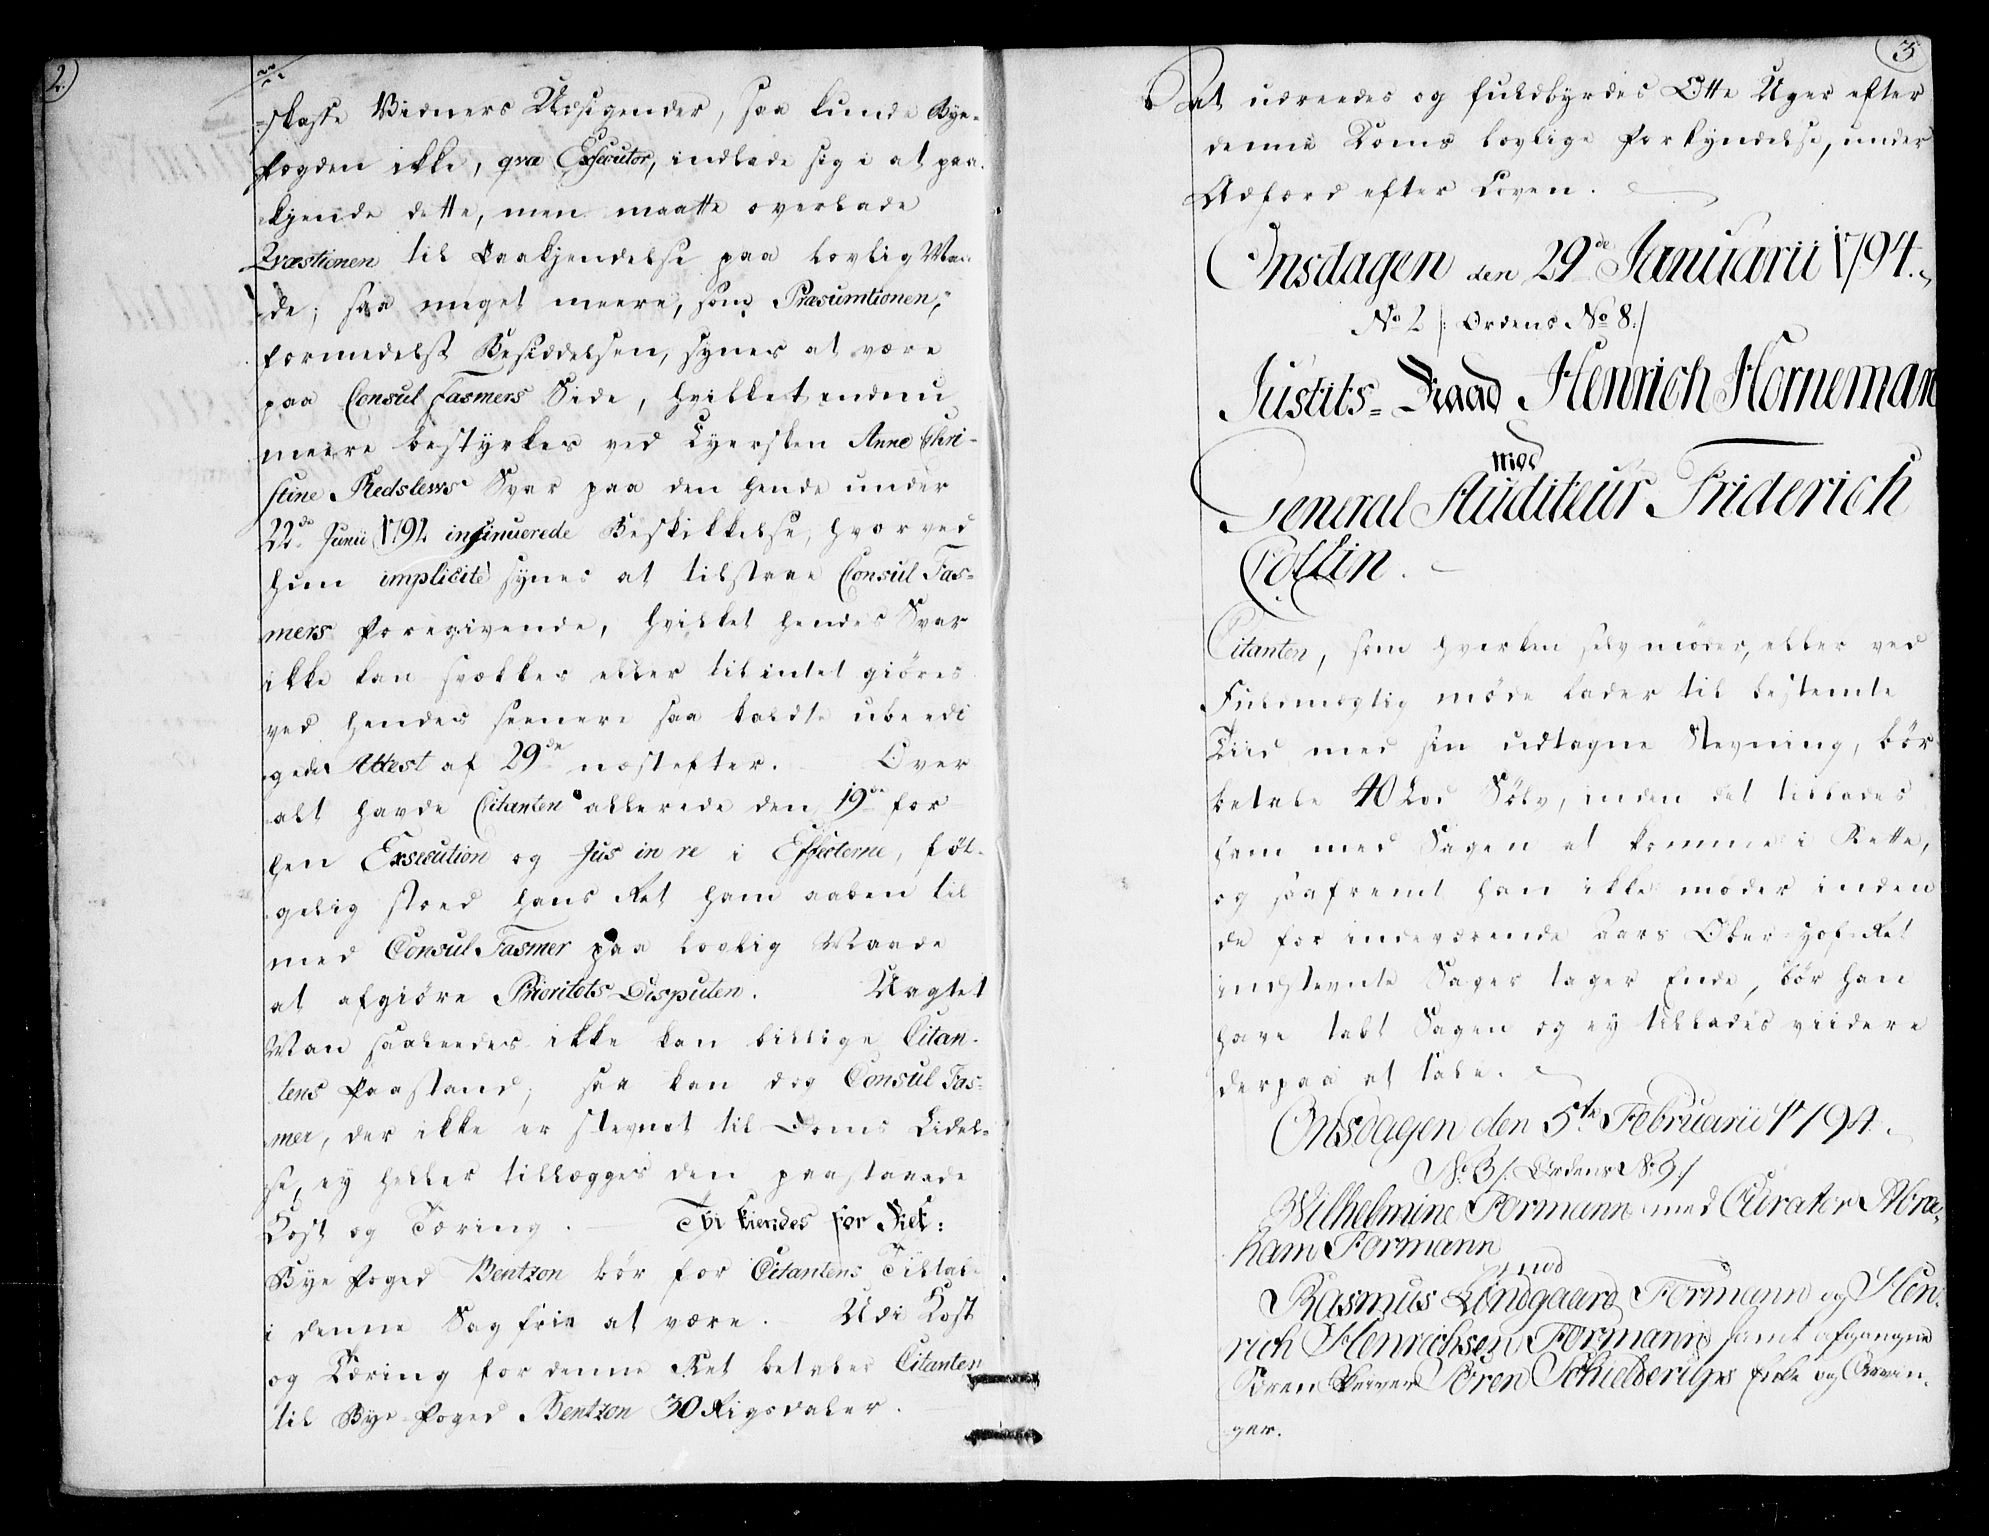 2.
skafte Vidners Udsigender, saa kunde Bye-
fogden ikke, qva Executor, indlade sig i at paa-
kjende dette, men maatte overlade
Qvæstionen til Paakjendelse paa lovlig Maa-
de; saa meget meere, som Præsumtionen,
formedelst Besiddelsen, synes at være
paa Consul Fasmers Side, hvilket endnu
meere bestyrkes ved Tyersken Anne Chri-
stine Redslews Svar paa den hende under
22de Junii 1792 insinuerede Beskikkelse, hvorved
hun implicité synes at tilstaae Consul Fas-
mers Foregivende, hvilket hendes Svar
ikke kan svækkes eller til intet giöres
ved hendes seenere saa kaldte ubeedi
gede Attest af 29de næstefter. Over
alt havde Citanten allerede den 19de for
hen Exsecution og Jus in re i Effecterne, föl-
gelig stoed hans Ret ham aaben til
med Consul Fasmer paa lovlig Maade
at afgiöre Prioritets-Disputen. Uagtet
Man saaleedes ikke kan billige Citan-
tens Paastand; saa kan dog Consul Fas-
mer, der ikke er stevnet til Doms Lidel-
se, ey heller tillægges den paastaaede
Kost og Tæring. Thi kiendes for Ret:
Bye Foged Bentzon bör for Citantens Tiltal-
i denne Sag frie at være. Udi Kost
og Tæring for denne Ret betaler Citanten
til Bye-Foged Bentzon 30 Rigsdaler.
3
Det udreedes og fuldbyrdes Otte Uger efter
denne Doms lovlige Forkyndelse, under
Adfærd efter Loven.
Onsdagen den 29de Januarii 1794.
No 2 /: Ordens No 8:/
Justits-Raad Henrich Horneman
mod
General Auditeur Friderich
Collin.
Citanten, som hverken selv möder, eller ved
Fuldmægtig möde lader til bestemte
Tiid med sin udtagne Stevning, bör
betale 40 Lod Sölv, inden det tillades
ham med Sagen at komme i Rette,
og saafremt han ikke möder inden
de for indeværende Aars Ober-Hof-Ret
indstevnte Sager tager Ende, bör han
have tabt Sagen og ey tillades viidere
derpaa at tale.
Onsdagen den 5te Februarii 1794.
No 3 /: Ordens No 9:/
Wilhelmine Formann med Curator Abra-
ham Formann
mod
Rasmus Londgaard Formann og Hen-
rich Henrichsen Formann samt afgangne
Soren Schielderups Enke og Arvin-
ger.